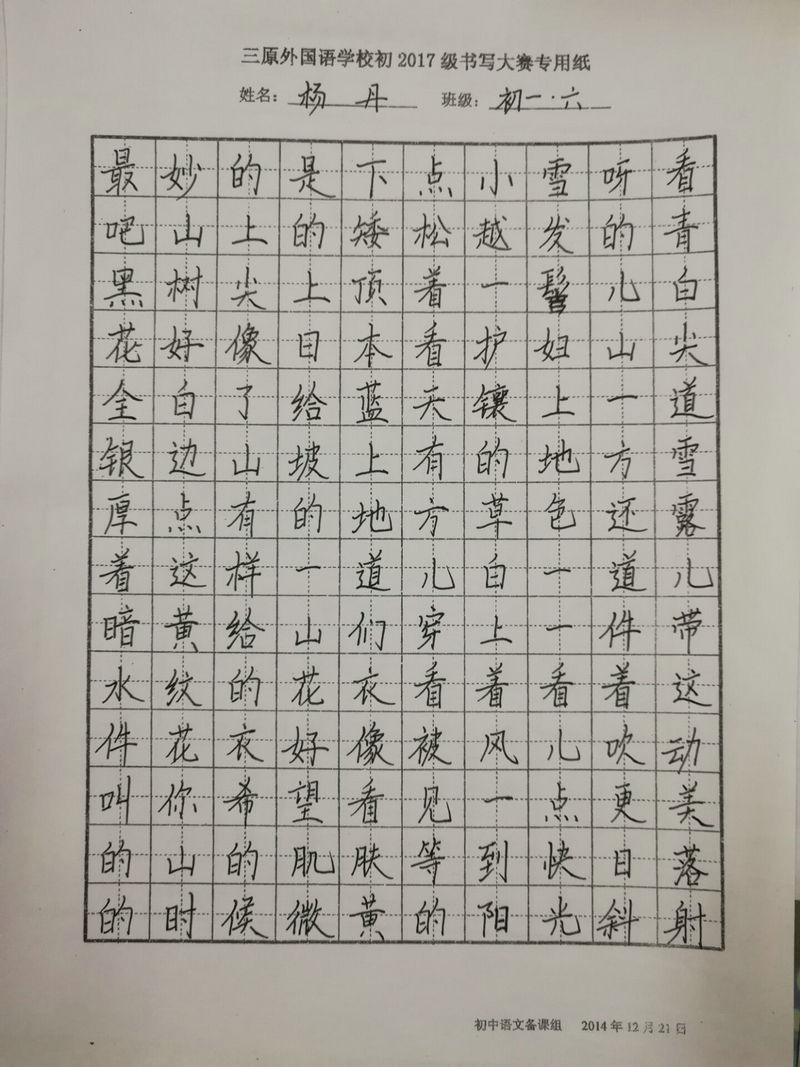 三原外国语学校初2017级书写大赛专用纸
姓名：杨丹 班级：初一·六
最妙的是下点小雪呀看
吧山上的矮松越发的青
黑树尖上顶着一髻儿白
花好像日本看护妇山尖
全白了给蓝天镶上一道
银边山坡上有的地方雪
厚点有的地方草色还露
着这样一道儿白一道儿
暗黄给山们穿上一件带
水纹的花衣看着看着这
件花衣好像被风儿吹动
叫你希望看见一点更美
的山的肌肤等到快日落
的时候微黄的阳光斜射
初中语文备课组 2014年12月21日